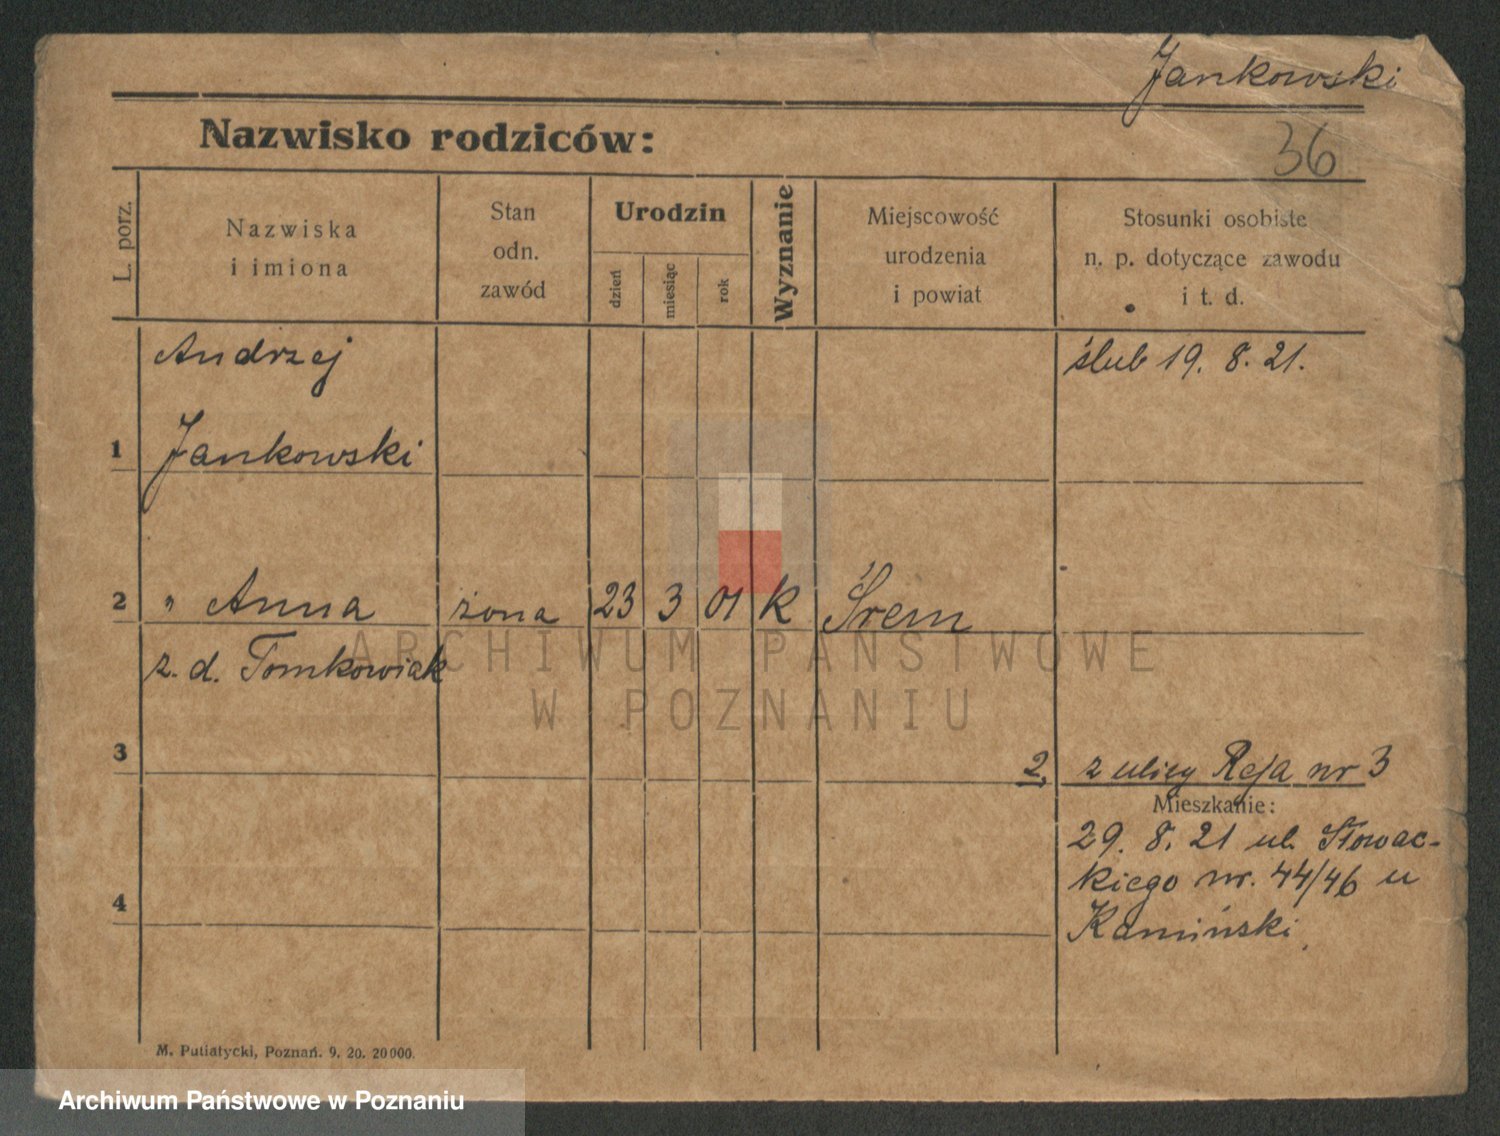 Jankowski
36
Nazwisko rodziców:
L. porz.
Nazwiska
i imiona
Stan
odn.
zawód
Urodzin
dzień
miesiąc
rok
Wyznanie
Miejscowość
urodzenia
i powiat
Stosunki osobiste
n. p. dotyczące zawodu
i t. d.
Andrzej
ślub 19. 8. 21.
1 Jankowski
2 " Anna żona 23 3 01 k Śrem
z. d. Tomkowiak
ARCHIWUM PAŃSTWOWE
W POZNANIU
3
2, z ulicy Reja nr 3
Mieszkanie:
29. 8. 21 ul. Słowac-
kiego nr. 44/46 u
4
Kamiński
M. Putiatycki, Poznań. 9. 20. 20000.
Archiwum Państwowe w Poznaniu